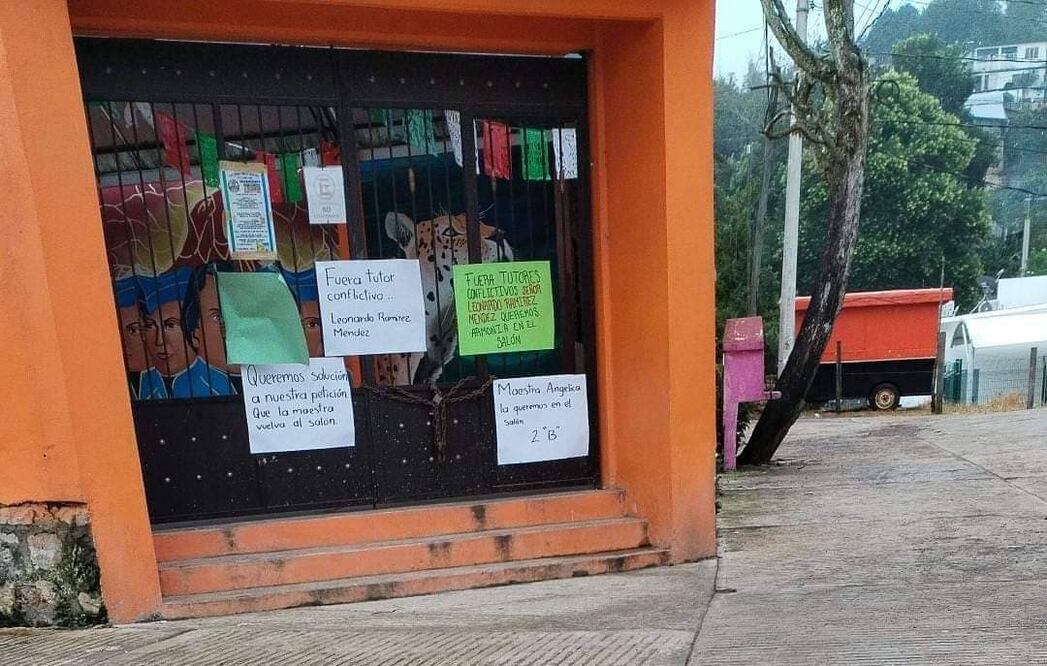 NO
Fuera tutor
conflictivo...
Leonardo Ramirez
Mendez
FUERA TUTORES
CONFLICTIVOS SEÑOR
LEONARDO RAMIREZ
MENDEZ QUEREMOS
ARMONIA EN EL
SALÓN
Queremos solución
a nuestra petición
Que la maestra
vuelva al salon.
Maestra Angelica
la queremos en el
salón
2 "B"